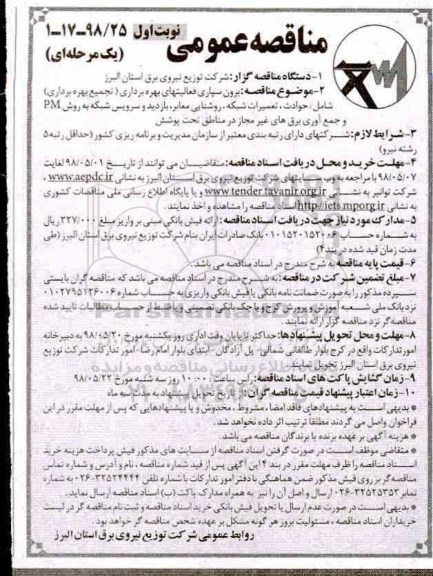 مناقصه عمومی
نوبت اول ۹۸/۲۵-۱۷-۱
(یک مرحله‌ای)
۱-دستگاه مناقصه گزار: شرکت توزیع نیروی برق استان البرز
۲-موضوع مناقصه: برون سپاری فعالیتهای بهره برداری (تجمیع بهره برداری)
شامل: حوادث، تعمیرات شبکه، روشنایی معابر، بازدید و سرویس شبکه به روش PM
و جمع آوری برق های غیر مجاز در مناطق تحت پوشش
۳-شرایط لازم: شرکتهای دارای رتبه بندی معتبر از سازمان مدیریت و برنامه ریزی کشور (حداقل رتبه ۵
رشته نیرو)
۴-مهلت خرید و محل دریافت اسناد مناقصه: متقاضیان می توانند از تاریخ ۹۸/۰۵/۰۱ لغایت
۹۸/۰۵/۰۷ با مراجعه به وب سایتهای شرکت توزیع نیروی برق استان البرز به نشانی www.aepdc.ir ،
شرکت توانیر به نشانی www.tender.tavanir.org.ir و یا پایگاه اطلاع رسانی ملی مناقصات کشوری
به نشانی http://iets.mporg.ir اسناد مناقصه را مشاهده و اخذ نمایند.
۵-مدارک مورد نیاز جهت دریافت اسناد مناقصه: ارائه فیش بانکی مبنی بر واریز مبلغ ۳۲۷/۰۰۰ ریال
به شماره حساب ۰۱۰۱۵۲۰۱۵۲۰۰۶ بانک صادرات ایران بنام شرکت توزیع نیروی برق استان البرز (طی
مدت زمان قید شده در بند ۴)
۶-قیمت پایه مناقصه به شرح مندرج در اسناد مناقصه می باشد.
۷-مبلغ تضمین شرکت در مناقصه: به شرح مندرج در اسناد مناقصه می باشد که مناقصه گران بایستی
سپرده مذکور را به صورت ضمانت نامه بانکی یا فیش بانکی واریزی به حساب شماره ۰۱۰۲۷۹۵۱۲۶۰۰۶
نزد بانک ملی شعبه آموزش و پرورش کرج و یا چک بانکی تضمینی و یا از محل مطالبات تایید شده
مناقصه گر نزد مناقصه گزار ارائه نمایند.
۸-مهلت و محل تحویل پیشنهادها: حداکثر تا پایان وقت اداری روز یکشنبه مورخ ۹۸/۰۵/۲۰ به دبیرخانه
امور تدارکات واقع در کرج بلوار طالقانی شمالی- پل آزادگان- ابتدای بلوار امام رضا- امور تدارکات شرکت توزیع
نیروی برق استان البرز تحویل نمایند.
۹-زمان گشایش پاکت های اسناد مناقصه: راس ساعت ۱۰:۰۰ روز سه شنبه مورخ ۹۸/۰۵/۲۲
۱۰-زمان اعتبار پیشنهاد قیمت مناقصه گران: از تاریخ تحویل پیشنهاد به مدت سه ماه
* بدیهی است به پیشنهادهای فاقد امضا، مشروط، مخدوش و یا پیشنهادهایی که پس از مهلت مقرر در این
فراخوان واصل می گردند مطلقاً ترتیب اثر داده نخواهد شد.
* هزینه آگهی بر عهده برنده یا برندگان مناقصه می باشد
* متقاضی موظف است در صورت گرفتن اسناد مناقصه از سایت های مذکور فیش پرداخت هزینه خرید
اسناد مناقصه را ظرف مهلت مقرر در بند ۴ این آگهی پس از قید شماره مناقصه، نام و آدرس و شماره تماس
مناقصه گر بر روی فیش مذکور ضمن هماهنگی با دفتر امور تدارکات با شماره تلفن ۳۲۵۲۴۴۴۴-۰۲۶ به شماره
نمابر ۳۲۵۲۵۳۵۲-۰۲۶ ارسال و اصل آن را نیز به همراه مدارک پاکت (ب) اسناد مناقصه ارسال نماید.
* بدیهی است در صورت عدم ارسال یا تحویل فیش بانکی خرید اسناد مناقصه و ثبت نام مناقصه گر در لیست
خریداران اسناد مناقصه، مسئولیت بروز هر گونه مشکل بر عهده شخص مناقصه گر خواهد بود.
روابط عمومی شرکت توزیع نیروی برق استان البرز